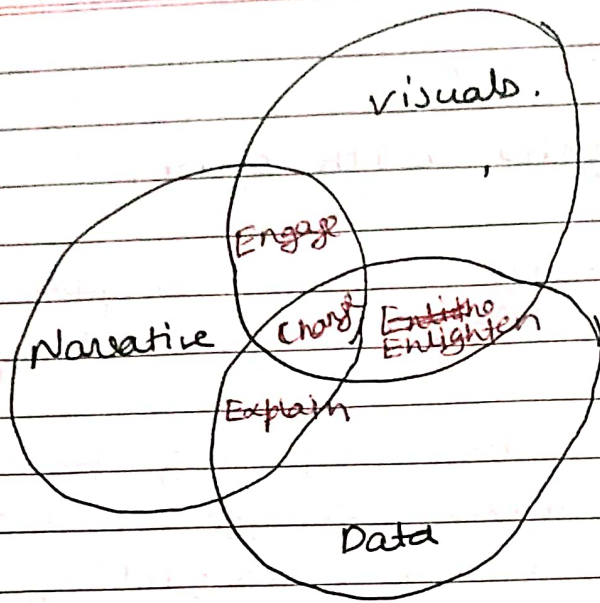 visuals.
Engage
Narrative
Change
Enlighten
Explain
Data